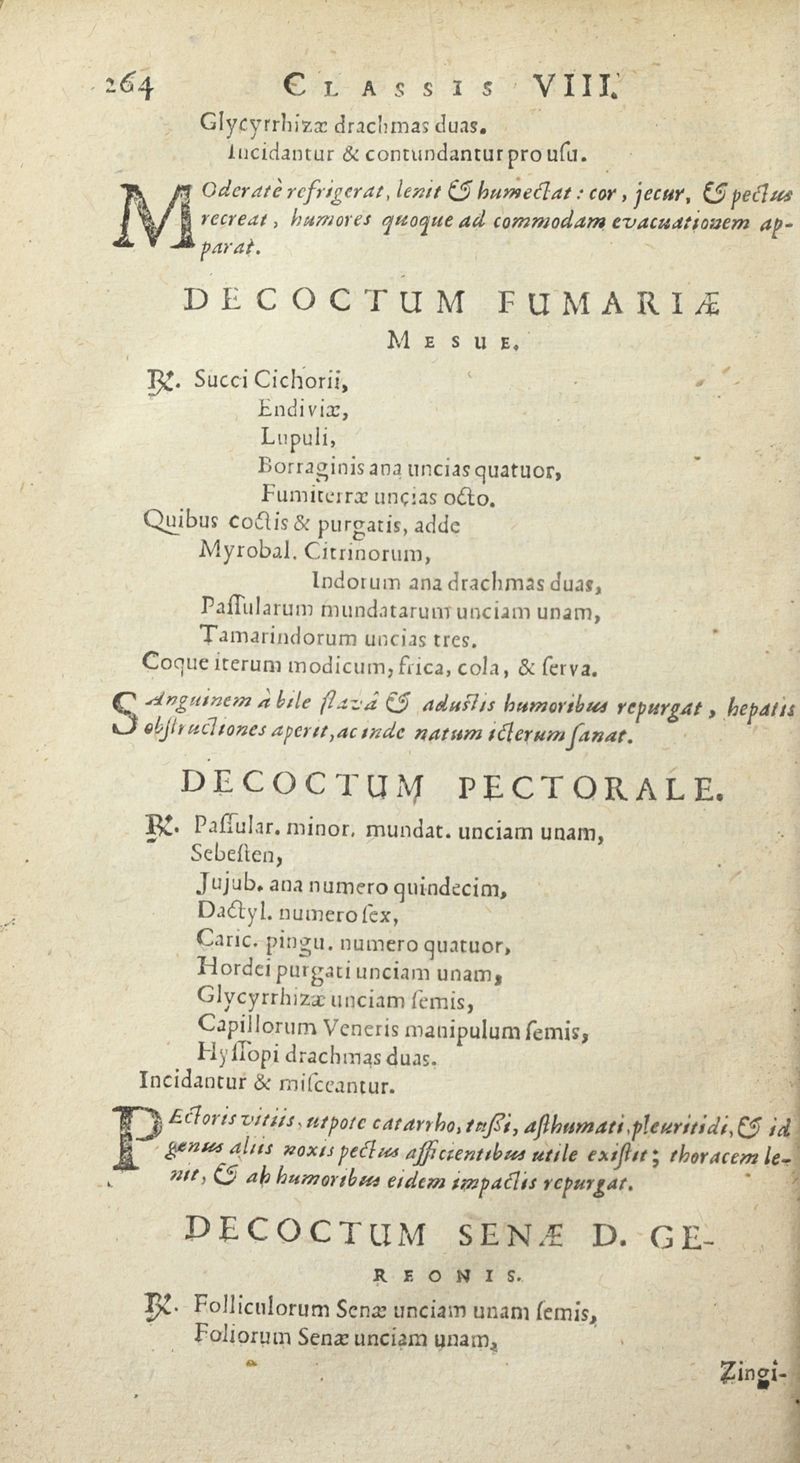 264 CLASSIS VIII.
Glycyrrhizæ drachmas duas.
Incidantur & contundantur pro uſu.
MOderatè refrigerat, lenit & humectat: cor, jecur, & pectus
recreat, humores quoque ad commodam evacuationem ap-
parat.
DECOCTUM FUMARIÆ
MESUE.
℞. Succi Cichorii,
Endiviæ,
Lupuli,
Borraginis ana uncias quatuor,
Fumiterræ uncias octo.
Quibus coctis & purgatis, adde
Myrobal. Citrinorum,
Indorum ana drachmas duas,
Paſſularum mundatarum unciam unam,
Tamarindorum uncias tres.
Coque iterum modicum, frica, cola, & ſerva.
SAnguinem à bile flavâ & adustis humoribus repurgat, hepatis
obſtructiones aperit, ac inde natum icterum ſanat.
DECOCTUM PECTORALE.
℞. Paſſular. minor. mundat. unciam unam,
Sebeſten,
Jujub. ana numero quindecim,
Dactyl. numero ſex,
Caric. pingu. numero quatuor,
Hordei purgati unciam unam,
Glycyrrhizæ unciam ſemis,
Capillorum Veneris manipulum ſemis,
Hyſſopi drachmas duas.
Incidantur & miſceantur.
PEctoris vitiis, utpote catarrho, tuſſi, aſthumati, pleuritidi, & id
genus aliis noxis pectus afficientibus utile exiſtit; thoracem le-
nit, & ab humoribus eidem impactis repurgat.
DECOCTUM SENÆ D. GE-
REONIS.
℞. Folliculorum Senæ unciam unam ſemis,
Foliorum Senæ unciam unam,
Zingi-